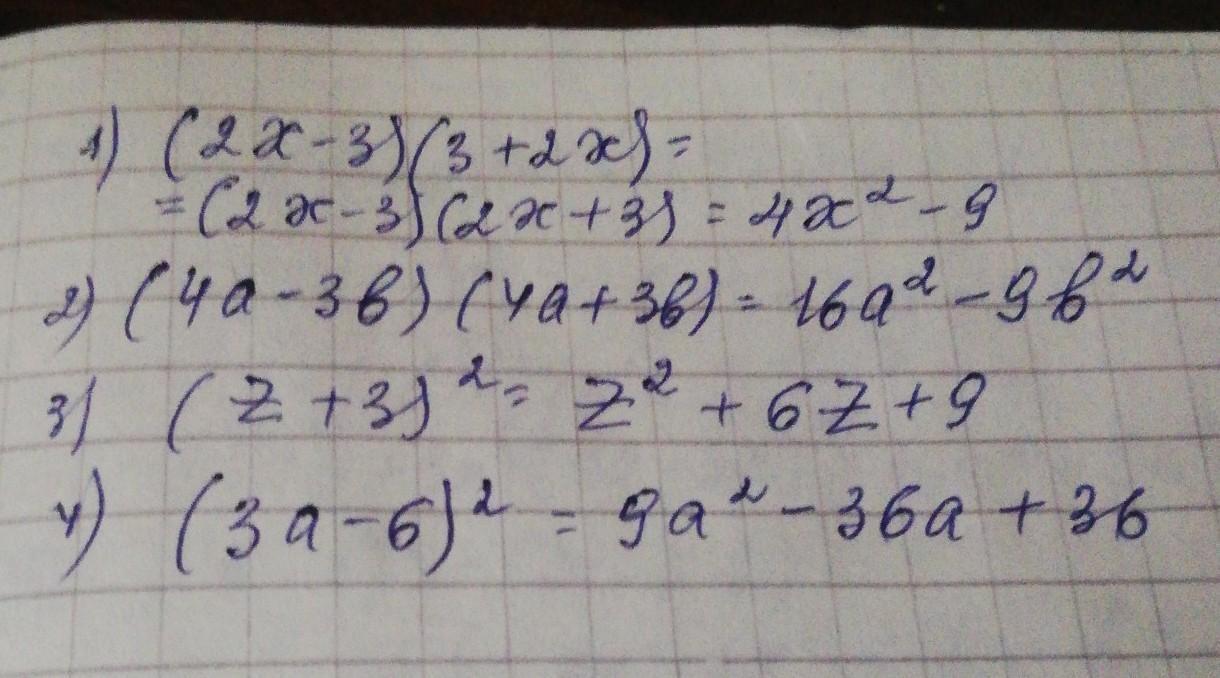 1) (2x-3)(3+2x)=
=(2x-3)(2x+3)=4x²-9
2) (4a-3b)(4a+3b)=16a²-9b²
3) (z+3)²=z²+6z+9
4) (3a-6)²=9a²-36a+36